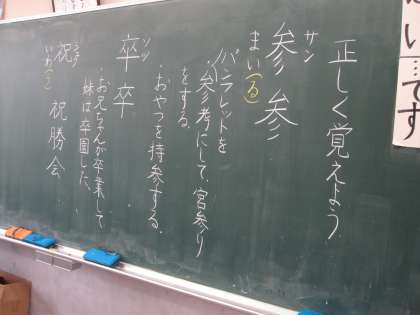 正しく覚えよう
サン
参参
まい(る)
パンフレットを
・参考にして、宮参り
をする。
・おやつを持参する。
ソツ
卒卒
・お兄ちゃんが卒業して
妹は卒園した。
祝 祝勝会
いわ(う)
はい…です